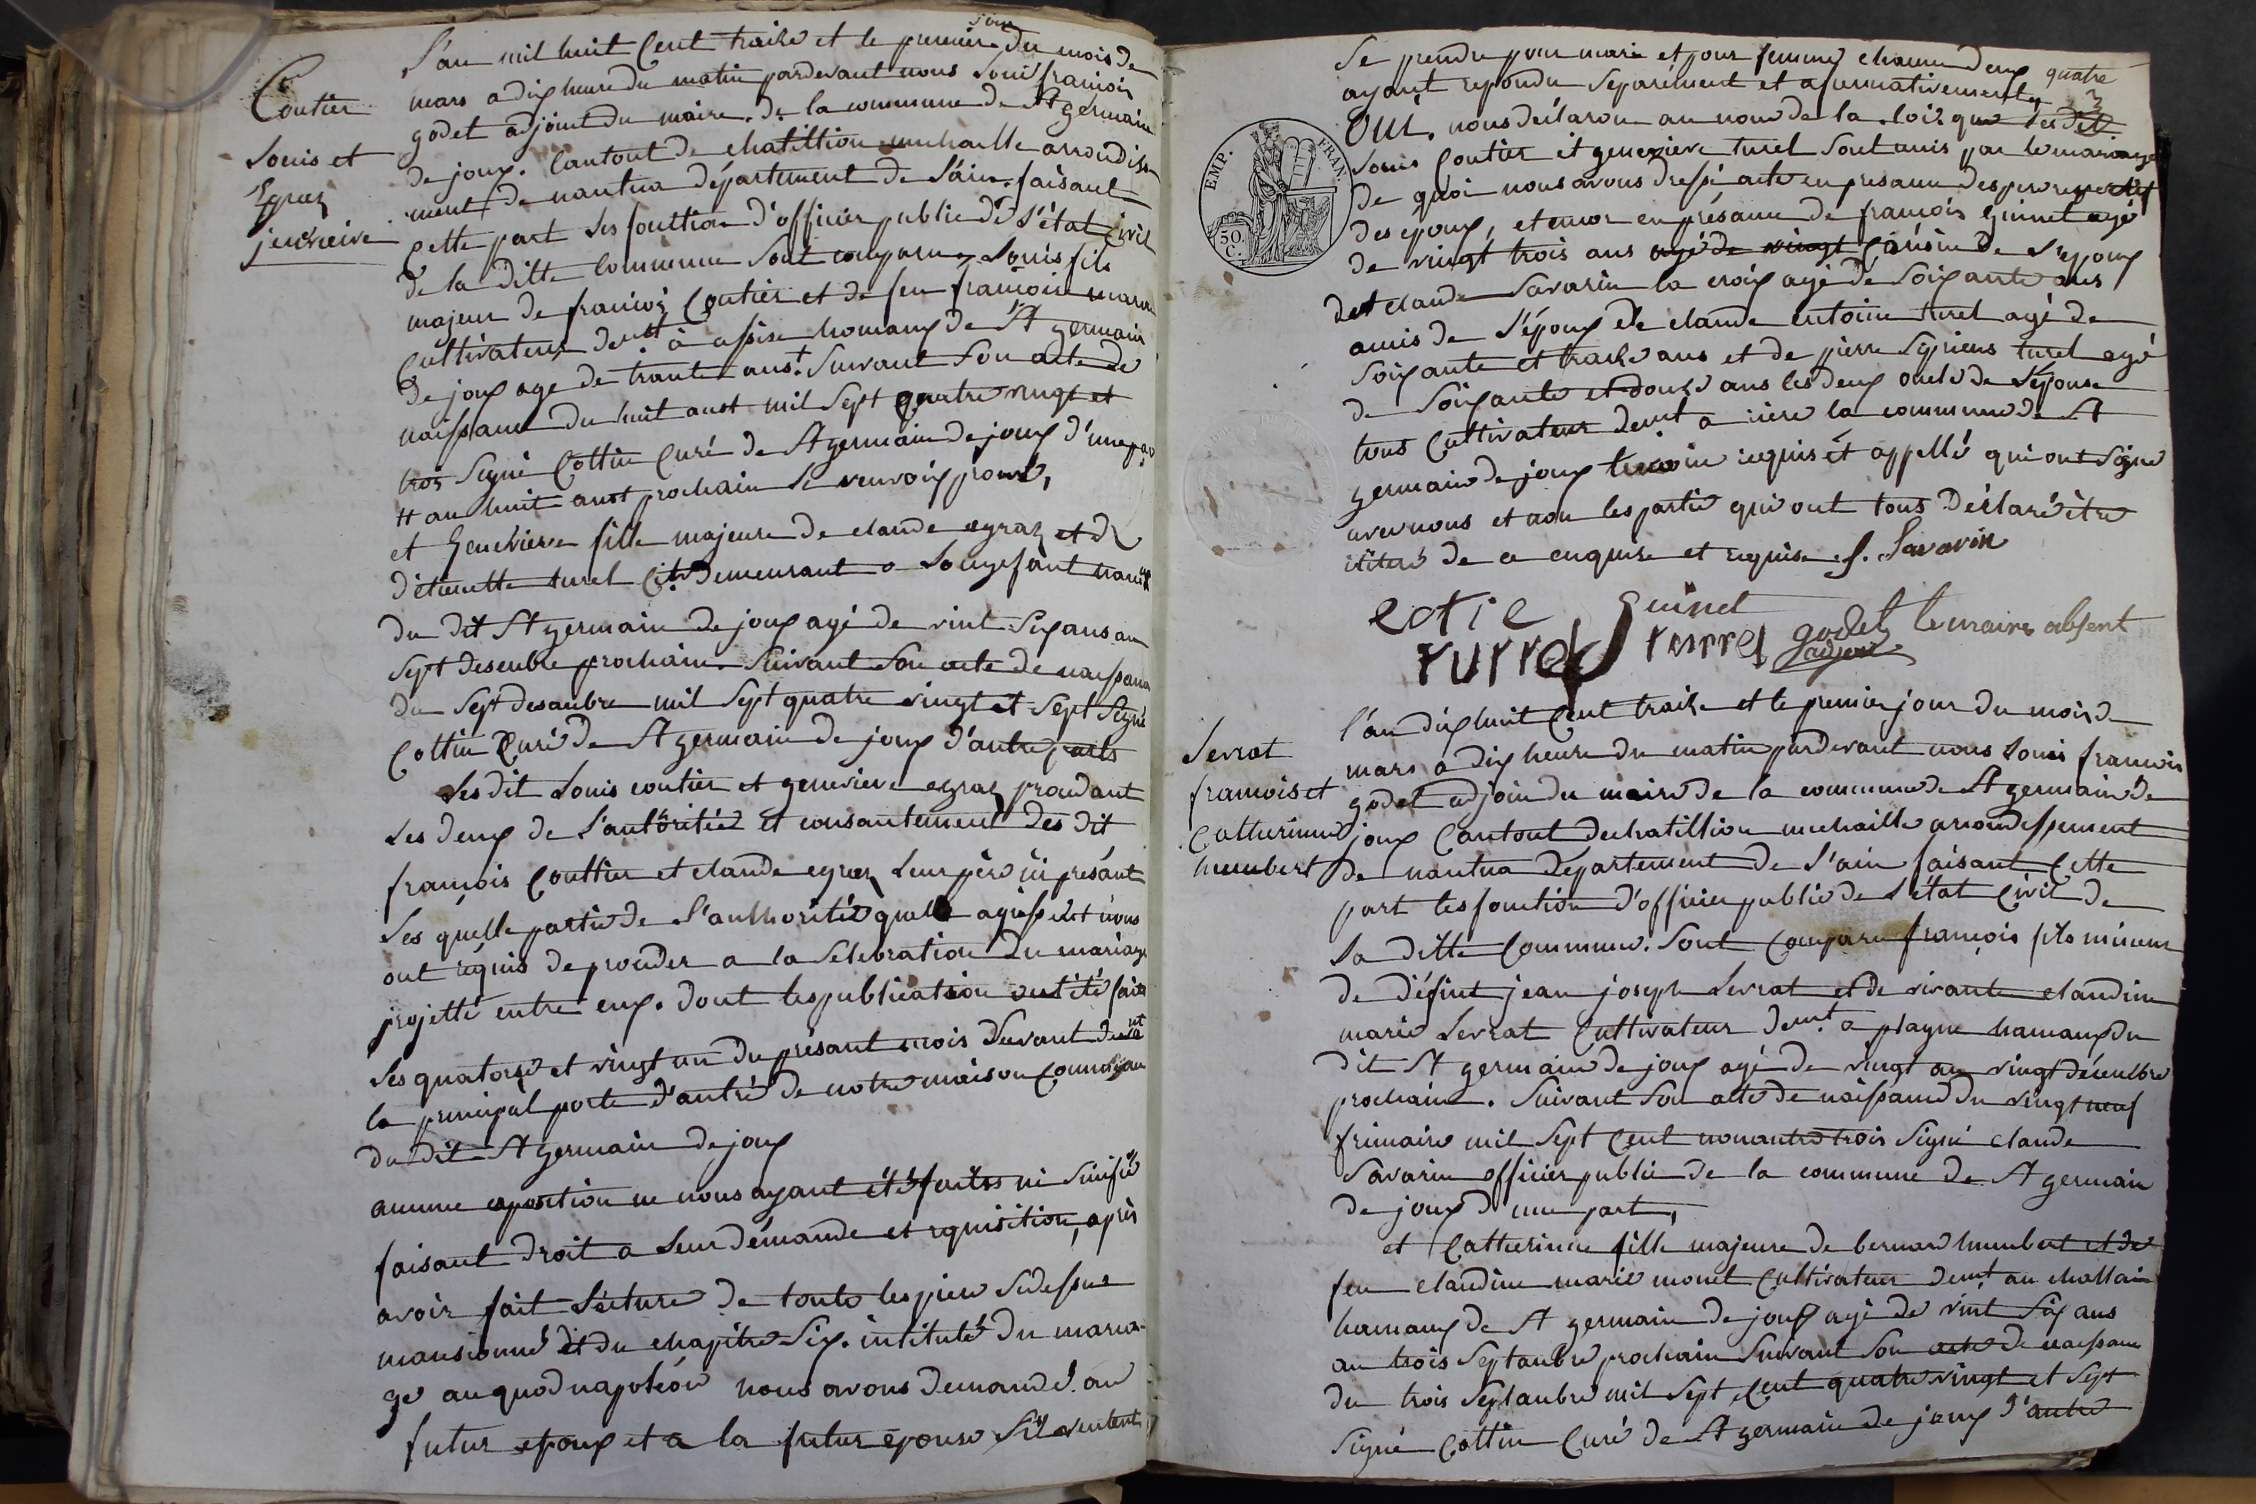 L'an mil huit Cent traize et le premier jour du mois de
Coutier
Louis et
Egraz
jenevieve
mars a dix heure du matin pardevant nous Louis francois
godet adjoint du maire de la commune de St germain
de joux. Cantont de chatillion michaille arrondisse
ment de nantua département de l'ain. faisant
Cette part les fonction d'officier public de l'état Civil
de la ditte Commune Sont comparu Louis fils
majeur de francois Coutier et de feu francoise
Cultivateur demt à hamaux de St germain
de joux age de trante ans + Suivant Son acte de
naissance du huit aust mil Sept quatre vingt et
trois Signé Cottin Curé de St germain de joux d'une par
H au huit aust prochain le renvoix prouvé,
et Genevieve fille majeure de claude egraz et d
d'etiennette turel Cit. demeurant a
du dit St germain de joux agé de vint Six ans au
Sept desenbre prochain. Suivant Son acte de naissance
du Sept desanbre mil Sept quatre vingt et Sept Signé
Cottin Curé de St germain de joux d'autre parts
Les dit Louis coutier et genevieve egraz prosedant
Les deux de l'autoritée et consantement des dit
francois Couttier et claude egraz Leur père ici présant
Les quelle partie de l'authoritée quelle agissent nous
ont réquis de proseder a la Selebration du mariage
projetté entre eux. dont les publication ont été faites
Les quatorze et vingt un du présant mois devant devant
la principal porte d'antré de notre maison Commune
du dit St germain de joux
aucune oposition ne nous ayant été faites ni Sinifié
faisant droit a leur démande et requisition, après
avoir fait Lécture de toute les piece Sidessus
mansionné et du chapitre Six. intitulé du maria-
ge au quod napoléon nous avons demandé au
futur epoux et a la futur épouse S'il veulent
Se prendre pour mari et pour femme chacun deux
quatre
ayant repondu Séparément et afirmativement
Oui, nous déclaron au nom de la loix que les dit
EMP. FRAN.
50 C.
Louis Coutier et genevieve turel Sont unis par le mariage
de quoi nous avons dressé acte en presance des pere
des epoux, et encor en présance de francois guinet agé
de vingt trois ans agé de vingt Cousin de l'epoux
det claude Savarin la croix agé de Soixante ans
amis de l'époux de claude entoine turel agé de
Soixante et traize ans et de pierre Sipriens turel agé
de Soixante et douze ans les deux oncle de l'épouse
tous Cultivateur demt a riere la commune de St
germain de joux temoin requis et appellé qui ont Signé
avec nous et non les partie qui ont tous déclaré être
iliteré de ce enquise et requise f. Savarin
Guinet
turrel turrel godet adjoint le maire absent
Levrat
francois et
Catterinne
humbert
l'an dix huit Cent traize et le premier jour du mois de
mars a dix heure du matin pardevant nous Louis francois
godet adjoin du maire de la commune de St germain de
joux Cantout de chatillion michaille arrondissement
de nantua département de l'ain faisant Cette
part les fonction d'officier public de l'état Civil de
La ditte Commune. Sont Comparu francois fils mineur
de défint jean joseph Levrat et de vivante claudine
marie Levrat Cultivateur demt a plagne hamaux du
dit St germain de joux agé de vingt au vingt décembre
prochain. Suivant Son acte de naissance du vingt neuf
frimaire mil Sept Cent nonante trois Signé claude
Savarin officier public de la commune de St germain
de joux d'une part,
et Catterinne fille majeure de bernard humbert et de
feu claudine marie monet Cultivateur demt au challain
hamaux de St germain de joux agé de vint Six ans
au trois Septanbre prochain Suivant Son acte de naissance
du trois Septanbre mil Sept Cent quatre vingt et Sept
Signé Cottin Curé de St germain de joux d'autre